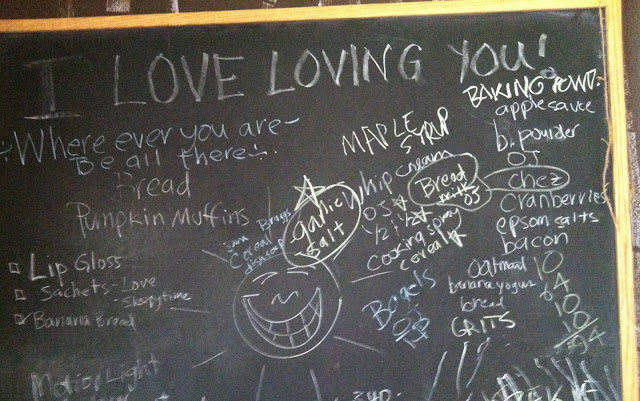 I LOVE LOVING YOU!
Where ever you are-
Be all there
Bread
Pumpkin Muffins
Lip Gloss
Sachets - Love
- Sleepytime
Banana Bread
Motion Light
Braggs
Cereal
dishsoap
garlic
salt
MAPLE
SYRUP
whip cream
OJ
1/2 i 1/2
cooking spray
cereal
Bagels
OJ
TP
Bread
milk
OJ
BAKING POWD.
applesauce
b. powder
OJ
chez
cranberries
epsom salts
bacon
oatmeal
banana yogurt
bread
GRITS
10
64
10
10